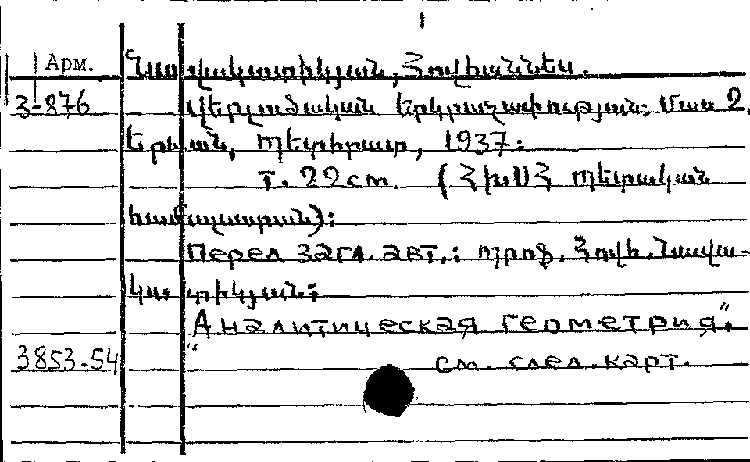 Арм. Նավակատիկյան, Հովհաննես.
3-876 Վերլուծական երկրաչափություն: Մաս 2.
Երևան, Պետհրատ, 1937:
т. 22 cm. (ՀԽՍՀ Պետական
համալսարան):
Перед загл. авт.: պրոֆ. Հովհ. Նավա-
կատիկյան:
"Аналитическая геометрия".
3853-54 см. след. карт.